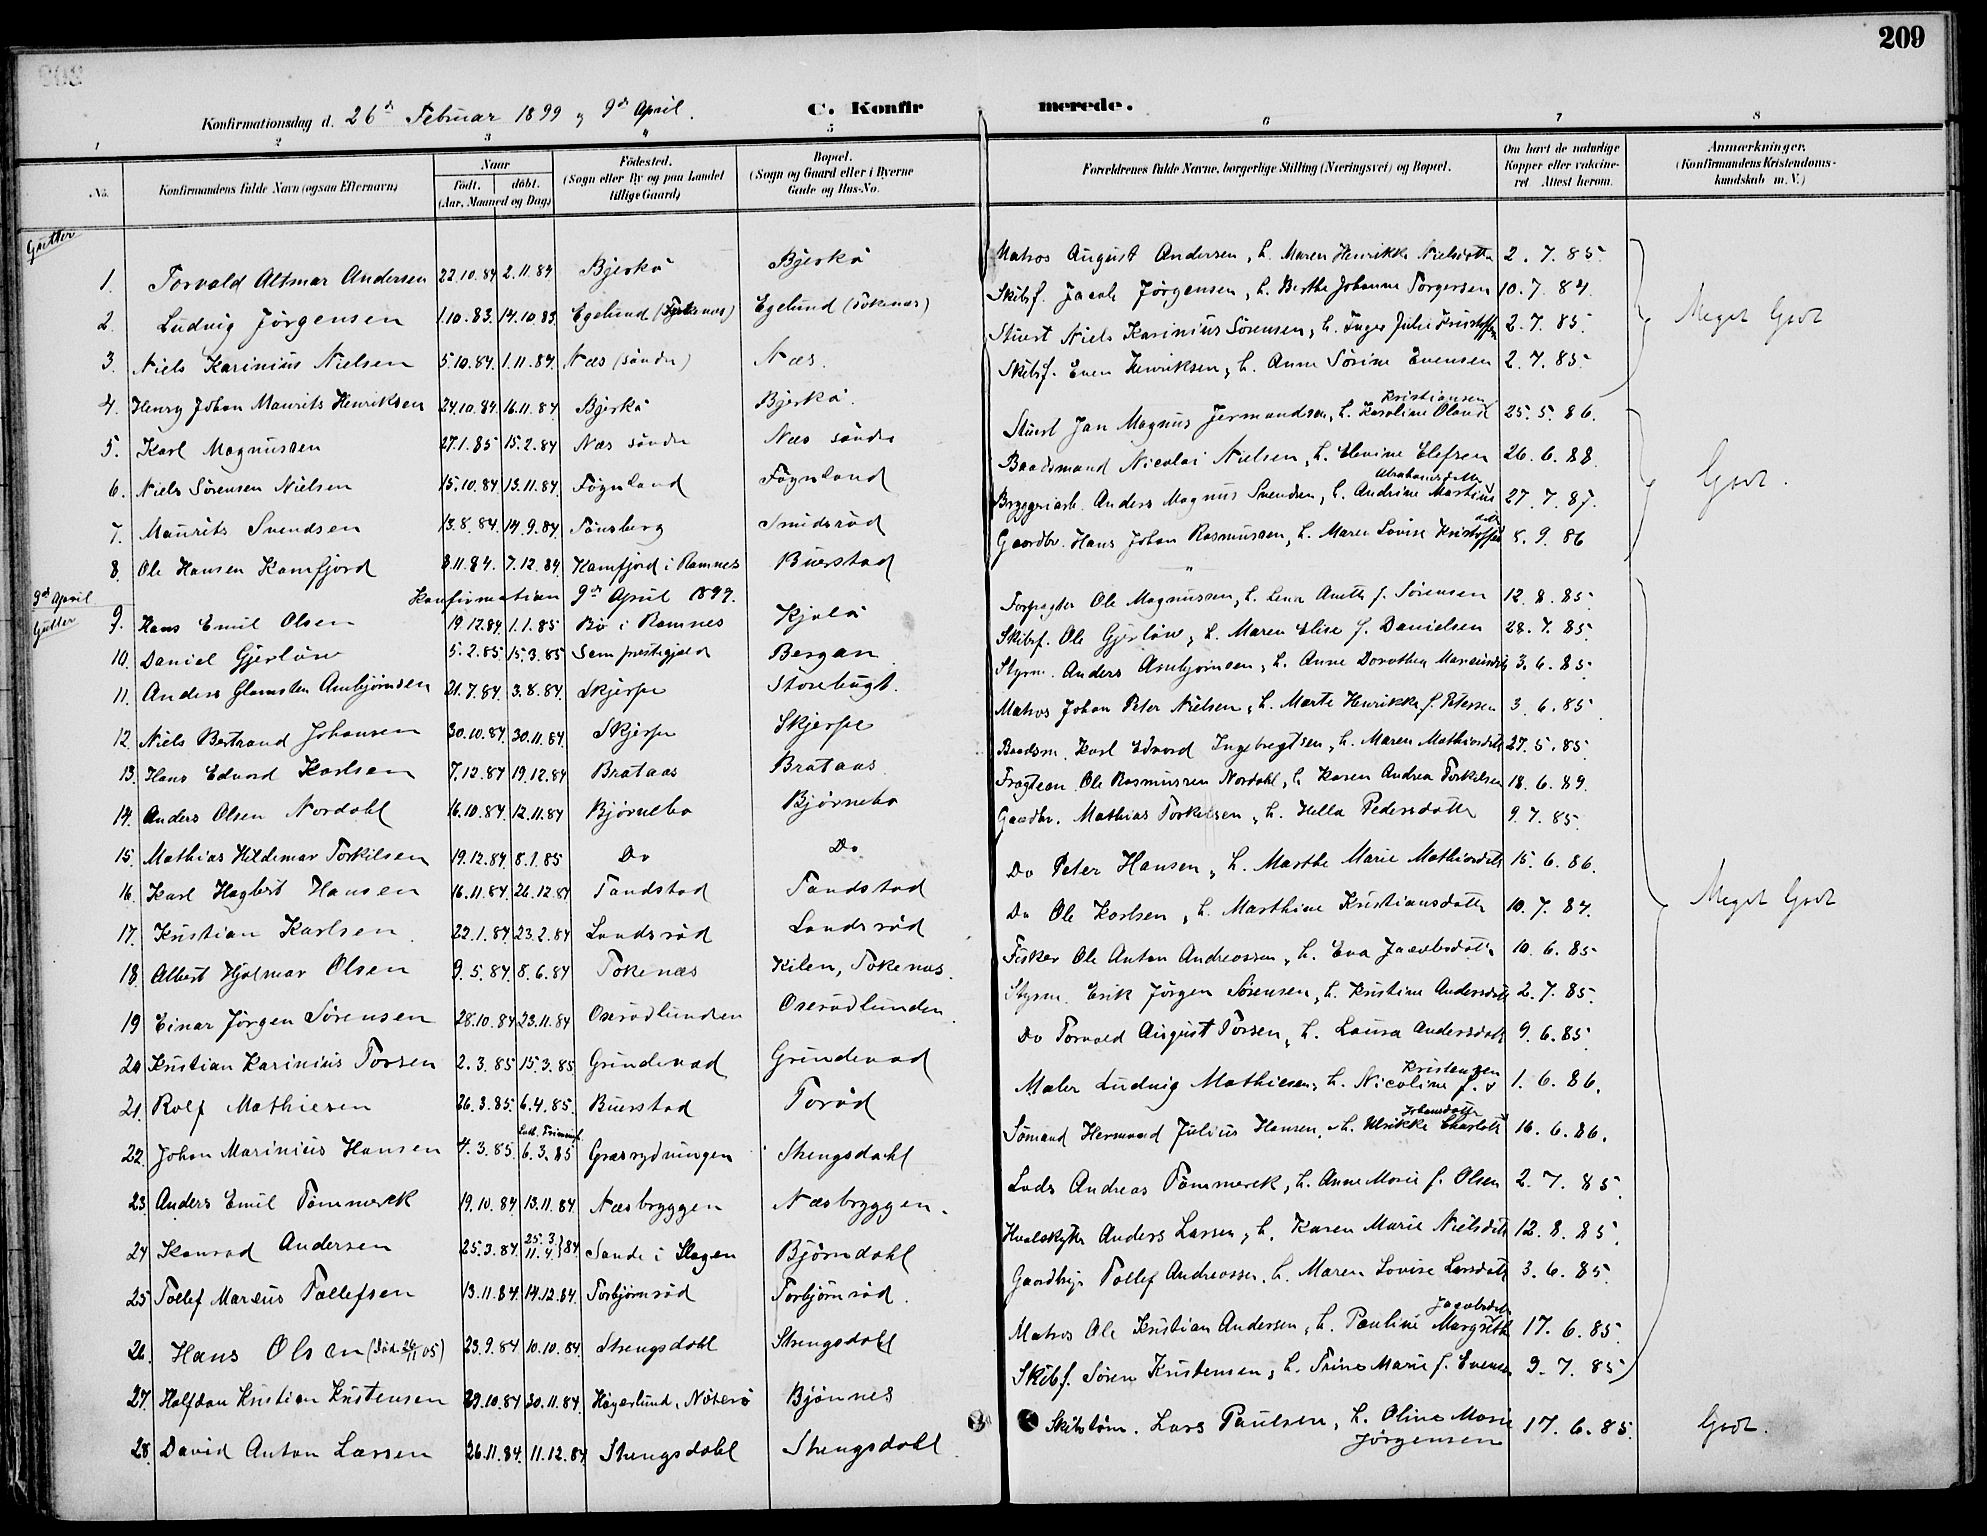 209
Konfirmationsdag d. 26de Februar 1899 og 9de April. C. Konfirmerede.
1 2 3 4 5 6 7 8
No. Konfirmandens fulde Navn (ogsaa Efternavn) Naar Födt. döbt. (Aar, Maaned og Dag) Födested. (Sogn eller By og paa Landet tillige Gaard) Bopæl. (Sogn og Gaard eller i Byerne Gade og Hus-No. Forældrenes fulde Navne, borgerlige Stilling (Næringsvei) og Bopæl. Om havt de naturlige Kopper eller vakcineret Attest herom. Anmærkninger. (Konfirmandens Kristendomskundskab m. V.)
Gutter
1. Torvald Altmar Andersen 22.10.84 2.11.84 Bjerkö Bjerkö Matros August Andersen, h. Maren Henrikke Nielsdatter 2.7.85.
2. Ludvig Jörgensen 1.10.83. 14.10.83 Egelund Egelund (Tökenes) Skibsf. Jacob Jörgensen, h. Berthe Johanne Torgersen 10.7.84.
3. Niels Karinius Nielsen 5.10.84. 1.11.84. Næs (söndre) Næs. Stuert Niels Karinius Sörensen, h. Inger Julie 2.7.85. Meget Godt
4. Henry Johan Maurits Henriksen 24.10.84 16.11.84 Bjerkö Bjerkö. Skibsf. Even Henriksen, h. Anne Sörine Evensen 2.7.85.
5. Karl Magnussen 27.1.85 15.2.84 Næs söndre Næs söndre Stuert Jan Magnus Jermandsen, h. Karoline Olava Kristiansen 25.5.86.
6. Niels Sörensen Nielsen 15.10.84 13.11.84. Fögnland Fögnland Baadsmand Nicolai Nielsen, h. Elevine Elefsen 26.6.88. Godt.
7. Maurits Svendsen 13.8.84. 14.9.84 Tönsberg Smidsröd Bryggeriarb. Anders Magnus Svendsen, h. Andrine Martine Abrahamsdatter 27.7.87.
8. Ole Hansen Kamfjord 8.11.84. 7.12.84 Kamfjord i Ramnes Buerstad Gaardbr. Hans Johan Rasmussen, h. Maren Lovise 8.9.86
9de April Konfirmation 9de April 1899.
Gutter
9. Hans Emil Olsen 19.12.84 1.1.85 Bö i Ramnes Kjölö Forpagter Ole Magnussen, h. Lena Anette f. Sörensen 12.8.85.
10. Daniel Gjerlöw 5.2.85 15.3.85 Sem prestegjæld Bergan Skibsf. Ole Gjerlöw, h. Maren Elise f. Danielsen 28.7.85.
11. Anders Ambjörnsen 21.7.84 3.8.84. Skjerpe Storebugt. Styrm. Anders Ambjörnsen, h. Anne Dorothea 3.6.85
12. Niels Bertrand Johansen 30.10.84. 30.11.84. Skjerpe Skjerpe Matros Johan Peter Nielsen, h. Marte Henrikke f. Petersen 3.6.85
13. Hans Edvard Karlsen 7.12.84 19.12.84 Brataas Brataas Baadsm. Karl Edvard Ingebregtsen, h. Maren Mathiasdtr 27.5.85.
14. Anders Olsen Nordahl 16.10.84 12.11.84 Björnebo Björnebo Ole Rasmussen Nordahl, h. Karen Andrea Torkilsen 18.6.89.
15. Mathias Hildemar Torkilsen 19.12.84 8.1.85 Do Do Gaardbr. Mathias Torkelsen, h. Hella Pedersdatter 9.7.85.
16. Karl Hagbert Hansen 16.11.84. 26.12.84 Tandstad Tandstad Do Peter Hansen, h. Marthe Marie Mathiasdtr 15.6.86. Meget Godt
17. Kristian Karlsen 22.1.84. 23.2.84 Landsröd Landsröd Do Ole Karlsen, h. Marthine Kristiansdatter 10.7.84.
18. Albert Hjalmar Olsen 9.5.84. 8.6.84 Tokenes Kilen, Tokenes. Fisker Ole Anton Andreassen, h. Eva Jacobsdatter 10.6.85
19 Einar Jörgen Sörensen 28.10.84 23.11.84 Oserödlunden Oserödlunden. Styrm. Erik Jörgen Sörensen, h. Kristine Andersdtr 2.7.85.
20 Kristian Karinius Torsen 2.3.85 15.3.85 Grindevad Grindevad Do Torvald August Torsen, h. Laura Andersdatter 9.6.85.
21. Rolf Mathiesen 26.3.85. 6.4.85. Buerstad Toröd Maler Ludvig Mathiesen, h. Nicoline f. Kristensen 1.6.86.
22. Johan Marinius Hansen 4.3.85. 6.3.85 Græsrydningen Stengsdahl Sömand Hermand Julius Hansen, h. Ulrikke Charlotte Johansdatter 16.6.86.
23. Anders Emil Tömmerek 19.10.84 13.11.84 Næsbryggen Næsbryggen. Lods Andreas Tömmerek, h. Anne Marie f. Olsen 2.7.85.
24 Konrad Andersen 25.3.84. 25.3 11.4 }84 Sande i Slagen Björndahl Hvalskytter Anders Larsen, h. Karen Marie Nielsdtr 12.8.85.
25 Tollef Marcus Tollefsen 13.11.84. 14.12.84. Torbjörnröd Torbjörnröd. Tollef Andreassen, h. Maren Lovise Larsdatter 3.6.85.
26. Hans Olsen (Död 26/11 05) 23.9.84 10.10.84. Stengsdahl Stengsdahl Matros Ole Kristian Andersen, h. Pauline Margrethe Jacobsdtr 17.6.85.
27. Halfdan Kristian Kristensen 29.10.84 30.11.84. Högerlund, Nöterö Björnnes Skibsf. Sören Kristensen, h. Trine Marie f. Evensen 9.7.85
28. David Anton Larsen 26.11.84. 11.12.84 Stengsdahl Stengsdahl Skibstöm. Lars Paulsen, h. Oline Marie Jörgensen 17.6.85. Godt.